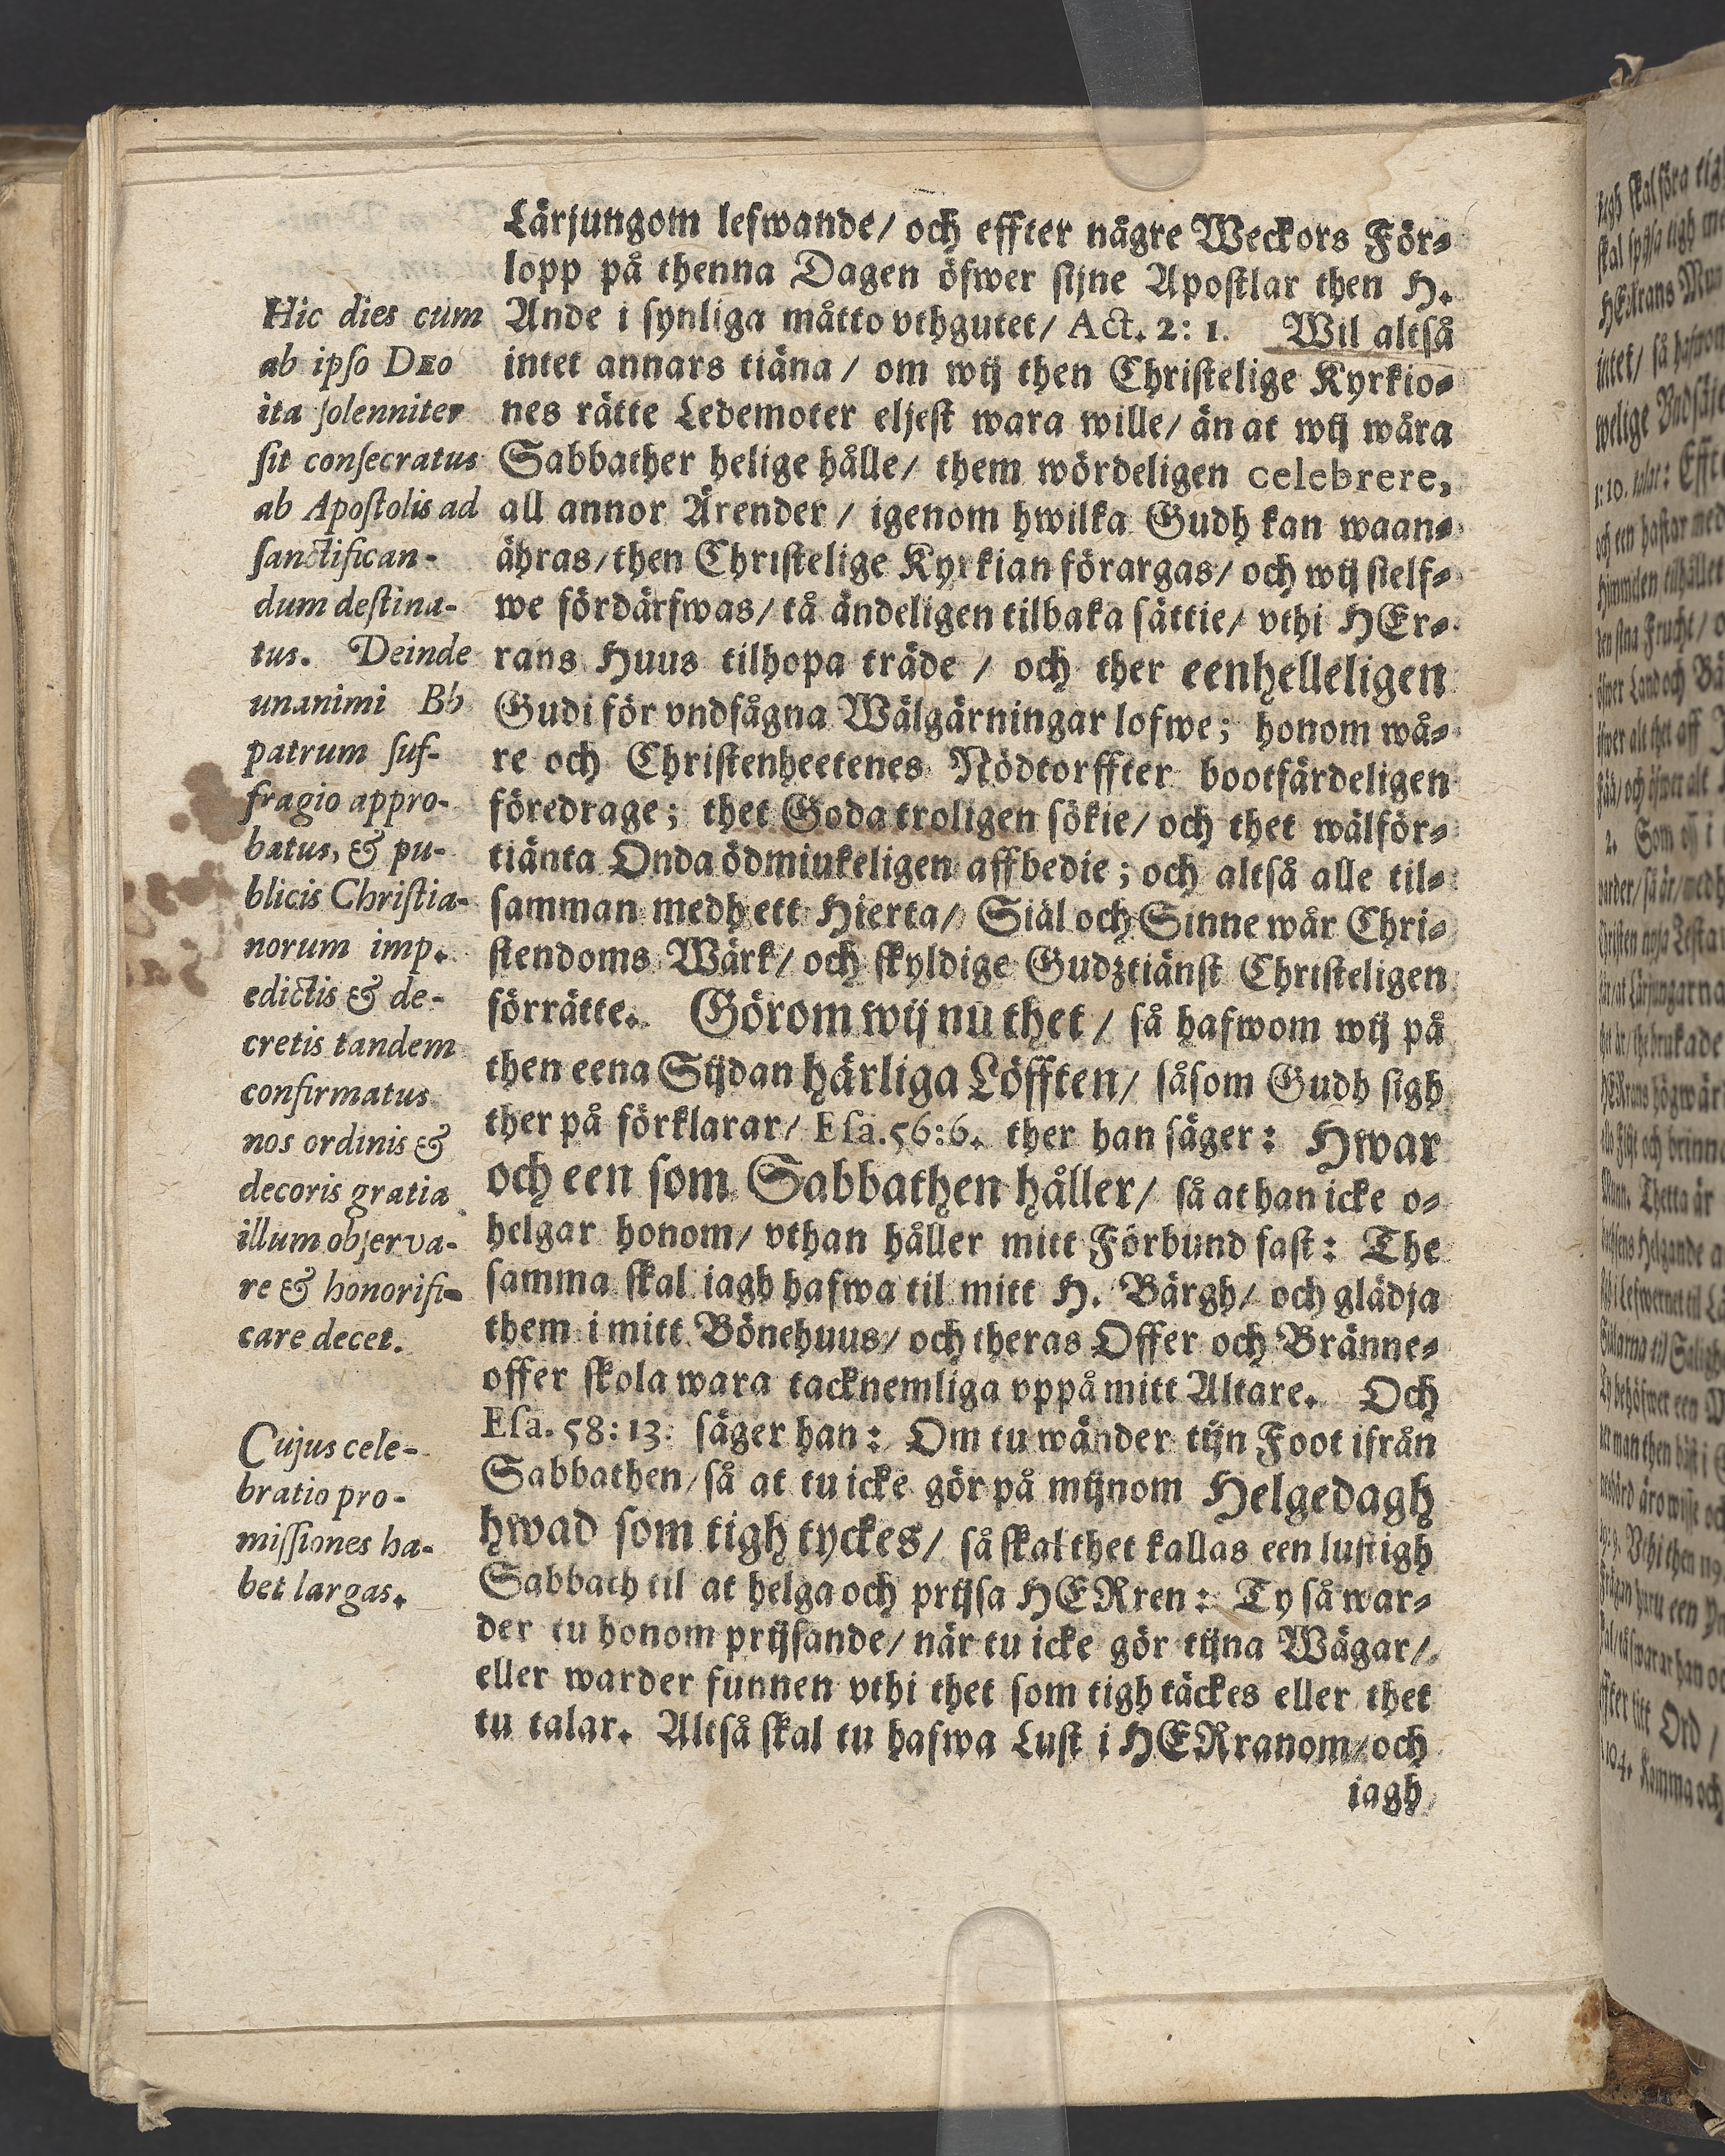 Lärjungom lefwande/ och effter någre Weckors För-
lopp på thenna Dagen öfwer sijne Apostlar then H.
Ande i synliga måtto vthgutet/ Act. 2: 1. Wil altså
intet annars tiäna / om wij then Christelige Kyrkio-
nes rätte Ledemoter eljest wara wille/ än at wij wåra
Sabbather helige hålle/ them wördeligen celebrere,
all annor Ärender / igenom hwilka Gudh kan waan-
ähras/ then Christelige Kyrkian förargas/ och wij sielf-
we fördärfwas/ tå ändeligen tilbaka sättie/ vthi HEr-
rans Huus tilhopa träde / och ther eenhelleligen
Gudi för vndfågna Wälgärningar lofwe; honom wå-
re och Christenheetenes Nödtorffter bootfärdeligen
föredrage; thet Goda troligen sökie/ och thet wälför-
tiänta Onda ödmiukeligen affbedie; och altså alle til-
samman medh ett Hierta/ Siäl och Sinne wår Chri-
stendoms Wärk/ och skyldige Gudztiänst Christeligen
förrätte. Görom wij nu thet / så hafwom wij på
then eena Sijdan härliga Löfften/ såsom Gudh sigh
ther på förklarar/ Esa. 56:6. ther han säger: Hwar
och een som Sabbathen håller/ så at han icke o-
helgar honom/ vthan håller mitt Förbund fast: The
samma skal iagh hafwa til mitt H. Bärgh/ och glädja
them i mitt Bönehuus/ och theras Offer och Bränne-
offer skola wara tacknemliga vppå mitt Altare. Och
Esa. 58: 13. säger han: Om tu wänder tijn Foot ifrån
Sabbathen/ så at tu icke gör på mijnom Helgedagh
hwad som tigh tyckes/ så skal thet kallas een lustigh
Sabbath til at helga och prijsa HERren: Ty så war-
der tu honom prijsande/ när tu icke gör tijna Wägar/
eller warder funnen vthi thet som tigh täckes eller thet
tu talar. Altså skal tu hafwa Lust i HERranom/ och
iagh
Hic dies cum
ab ipso DEO
ita solenniter
sit consecratus
ab Apostolis ad
sanctifican-
dum destina-
tus. Deinde
unanimi Bb
patrum suf-
fragio appro-
batus, & pu-
blicis Christia-
norum imp.
edictis & de-
cretis tandem
confirmatus
nos ordinis &
decoris gratia
illum observa-
re & honorifi-
care decet.
Cujus cele-
bratio pro-
missiones ha-
bet largas.